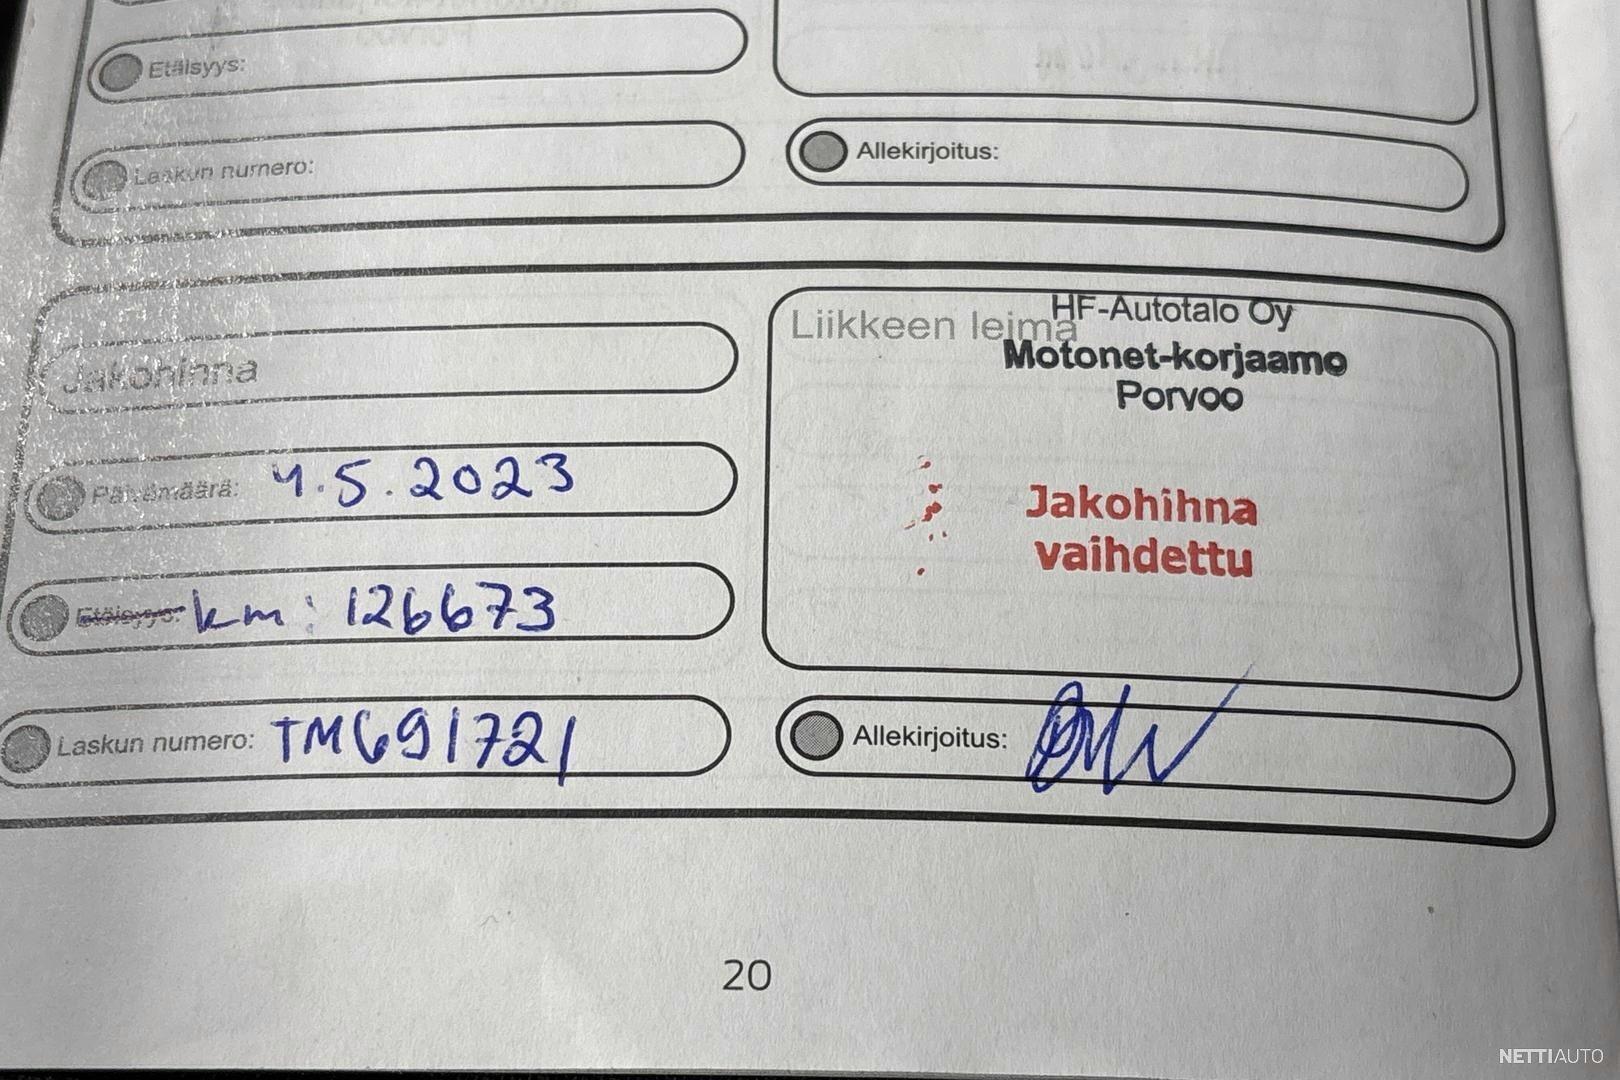 Etäisyys:
Laskun numero:
Allekirjoitus:
Jakohihna
Päivämäärä: 4.5.2023
Etäisyys: km: 126673
Laskun numero: TM691721
Liikkeen leima
HF-Autotalo Oy
Motonet-korjaamo
Porvoo
Jakohihna
vaihdettu
Allekirjoitus:
20
NETTIAUTO